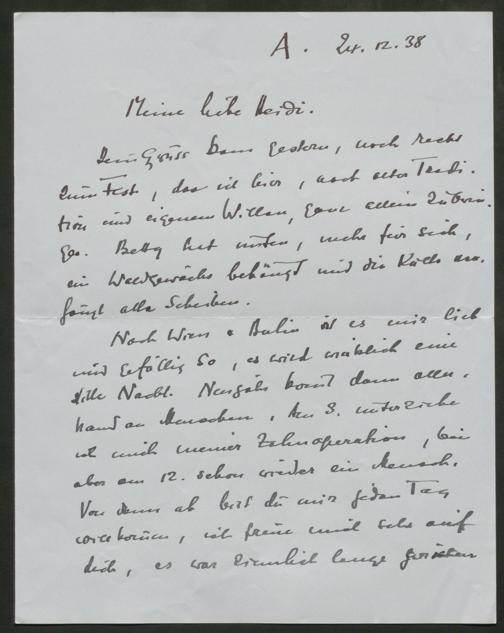 A. 24.12.38
Meine liebe Heidi.
Dein Gruss kam gestern, noch recht
zum Fest, das ich hier, nach alter Tradi-
tion und eigenem Willen, ganz allein zubrin-
ge. Betty hat unten, mehr für sich,
ein Waldgewächs behängt und die Kälte
alle Scheiben.
Nach Wien & Berlin ist es mir lieb
und gefällig so, es wird wirklich eine
stille Nacht. Neujahr kommt dann aller-
hand an Menschen, am 3. unterziehe
ich mich meiner Zahnoperation, bin
aber am 12. schon wieder ein Mensch.
Von dann ab bist du mir jeden Tag
willkommen, ich freue mich sehr auf
dich, es war ziemlich lange zwischen